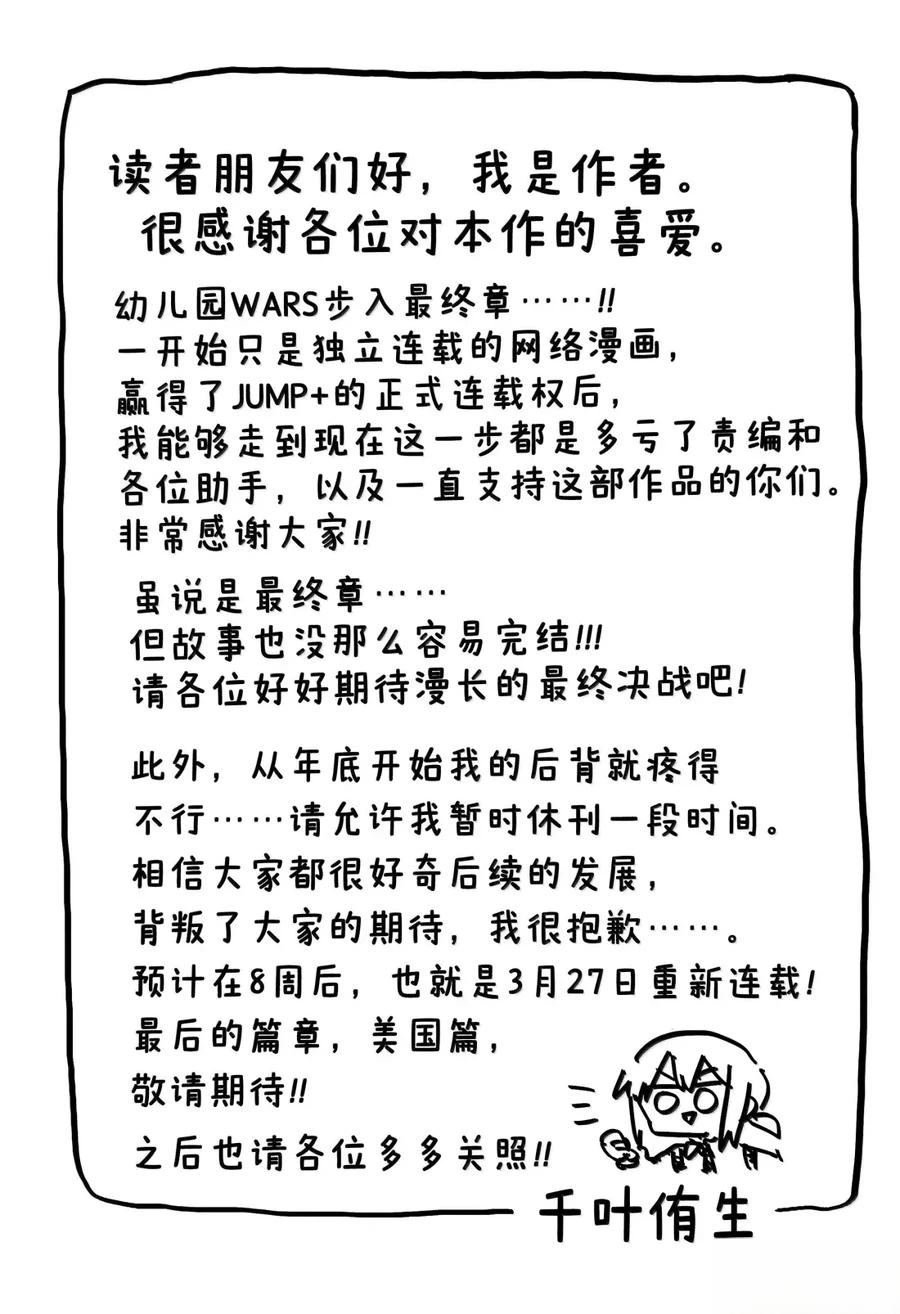 读者朋友们好，我是作者。
很感谢各位对本作的喜爱。
幼儿园WARS步入最终章……!!
一开始只是独立连载的网络漫画，
赢得了JUMP+的正式连载权后，
我能够走到现在这一步都是多亏了责编和
各位助手，以及一直支持这部作品的你们。
非常感谢大家!!
虽说是最终章……
但故事也没那么容易完结!!!
请各位好好期待漫长的最终决战吧!
此外，从年底开始我的后背就疼得
不行……请允许我暂时休刊一段时间。
相信大家都很好奇后续的发展，
背叛了大家的期待，我很抱歉……。
预计在8周后，也就是3月27日重新连载!
最后的篇章，美国篇，
敬请期待!!
之后也请各位多多关照!!
千叶侑生